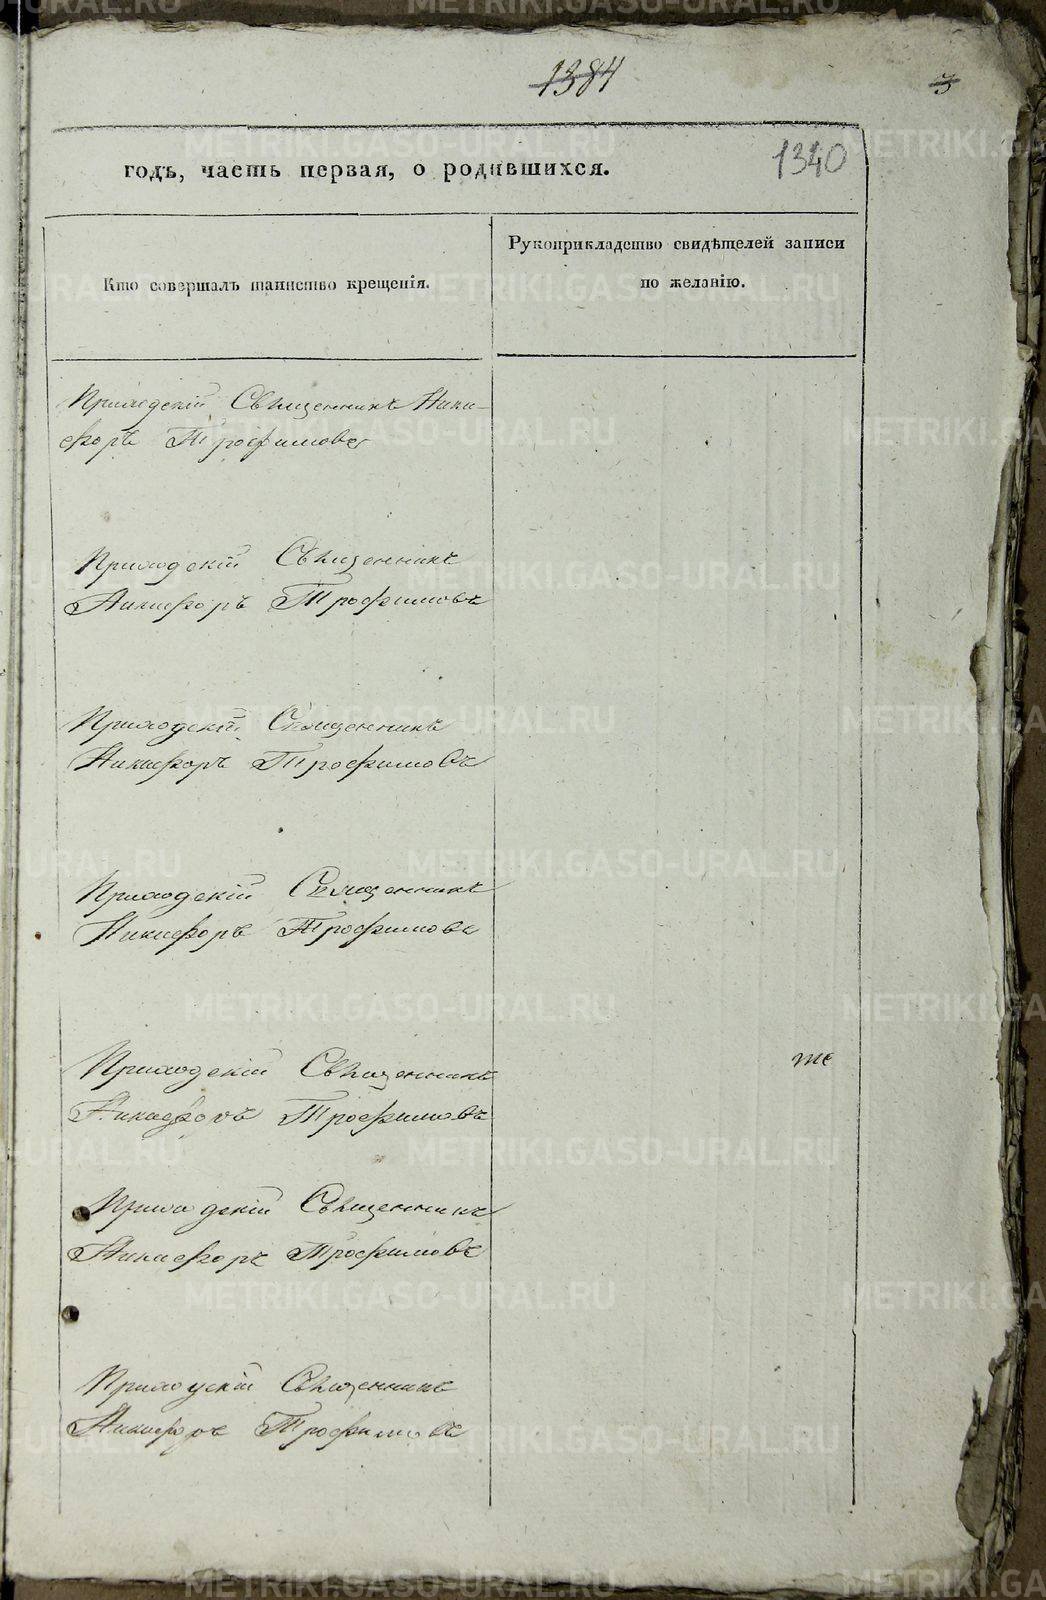 1384
3
1340
годъ, часть первая, о родившихся.
Кто совершалъ таинство крещенія.
Рукоприкладство свидѣтелей записи
по желанію.
Приходскій Священникъ Ники-
форъ Трофимовъ
Приходскій Священникъ
Никифоръ Трофимовъ
Приходскій Священникъ
Никифоръ Трофимовъ
Приходскій Священникъ
Никифоръ Трофимовъ
Приходскій Священникъ
Никифоръ Трофимовъ
Приходскій Священникъ
Никифоръ Трофимовъ
Приходскій Священникъ
Никифоръ Трофимовъ
METRIKI.GASO-URAL.RU